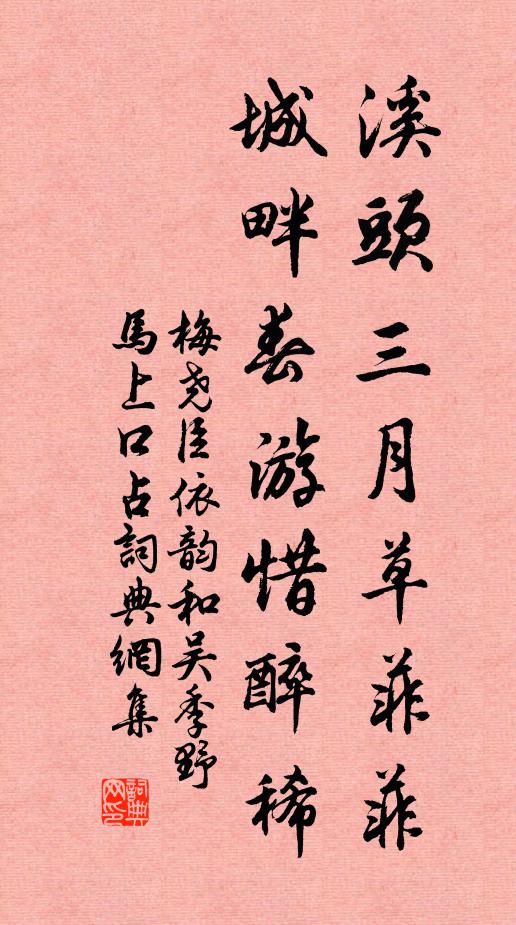 溪頭三月草菲菲
城畔春游惜醉稀
梅尧臣依韵和吴季野
馬上口占詞典網集
詞典
网印